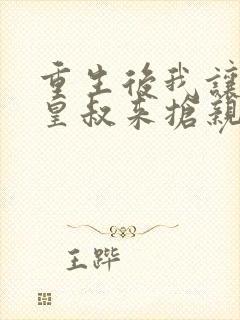 重生後我讓
皇叔来搶親
王跸